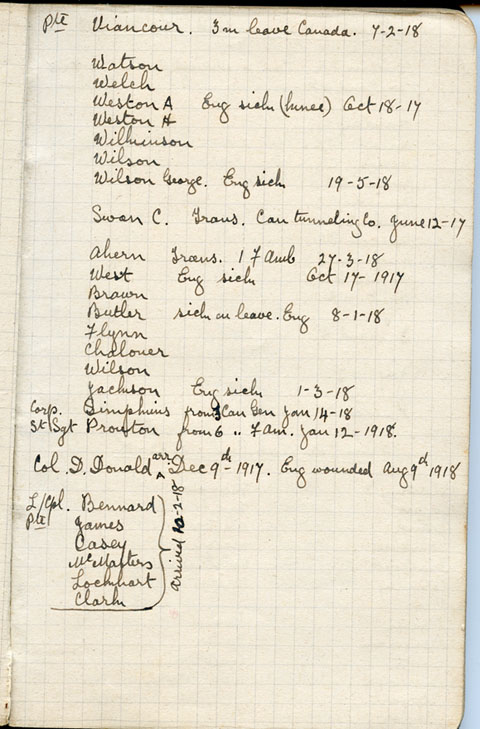 Pte Viancour. 3 m leave Canada. 7-2-18
Watson
Welch
Weston A Eng sick (knee) Oct 18-17
Weston H
Wilkinson
Wilson
Wilson George. Eng sick 19-5-18
Swan C. Trans. Can tunneling Co. June 12-17
Ahern Trans. 1 F Amb 27-3-18
West Eng sick Oct 17-1917
Brawn
Butler sick on leave. Eng 8-1-18
Flynn
Chaloner
Wilson
Jackson Eng sick 1-3-18
Corp. Simpkins from 3 Can Gen Jan 14-18
St Sgt Prouton from 6 " F Am. Jan 12-1918.
Col. D. Donald arr Dec 9th-1917. Eng wounded Aug 9th 1918
L/Cpl. Bennard
Pte James
Casey
McMasters
Lockhart
Clark
arrived -2-18